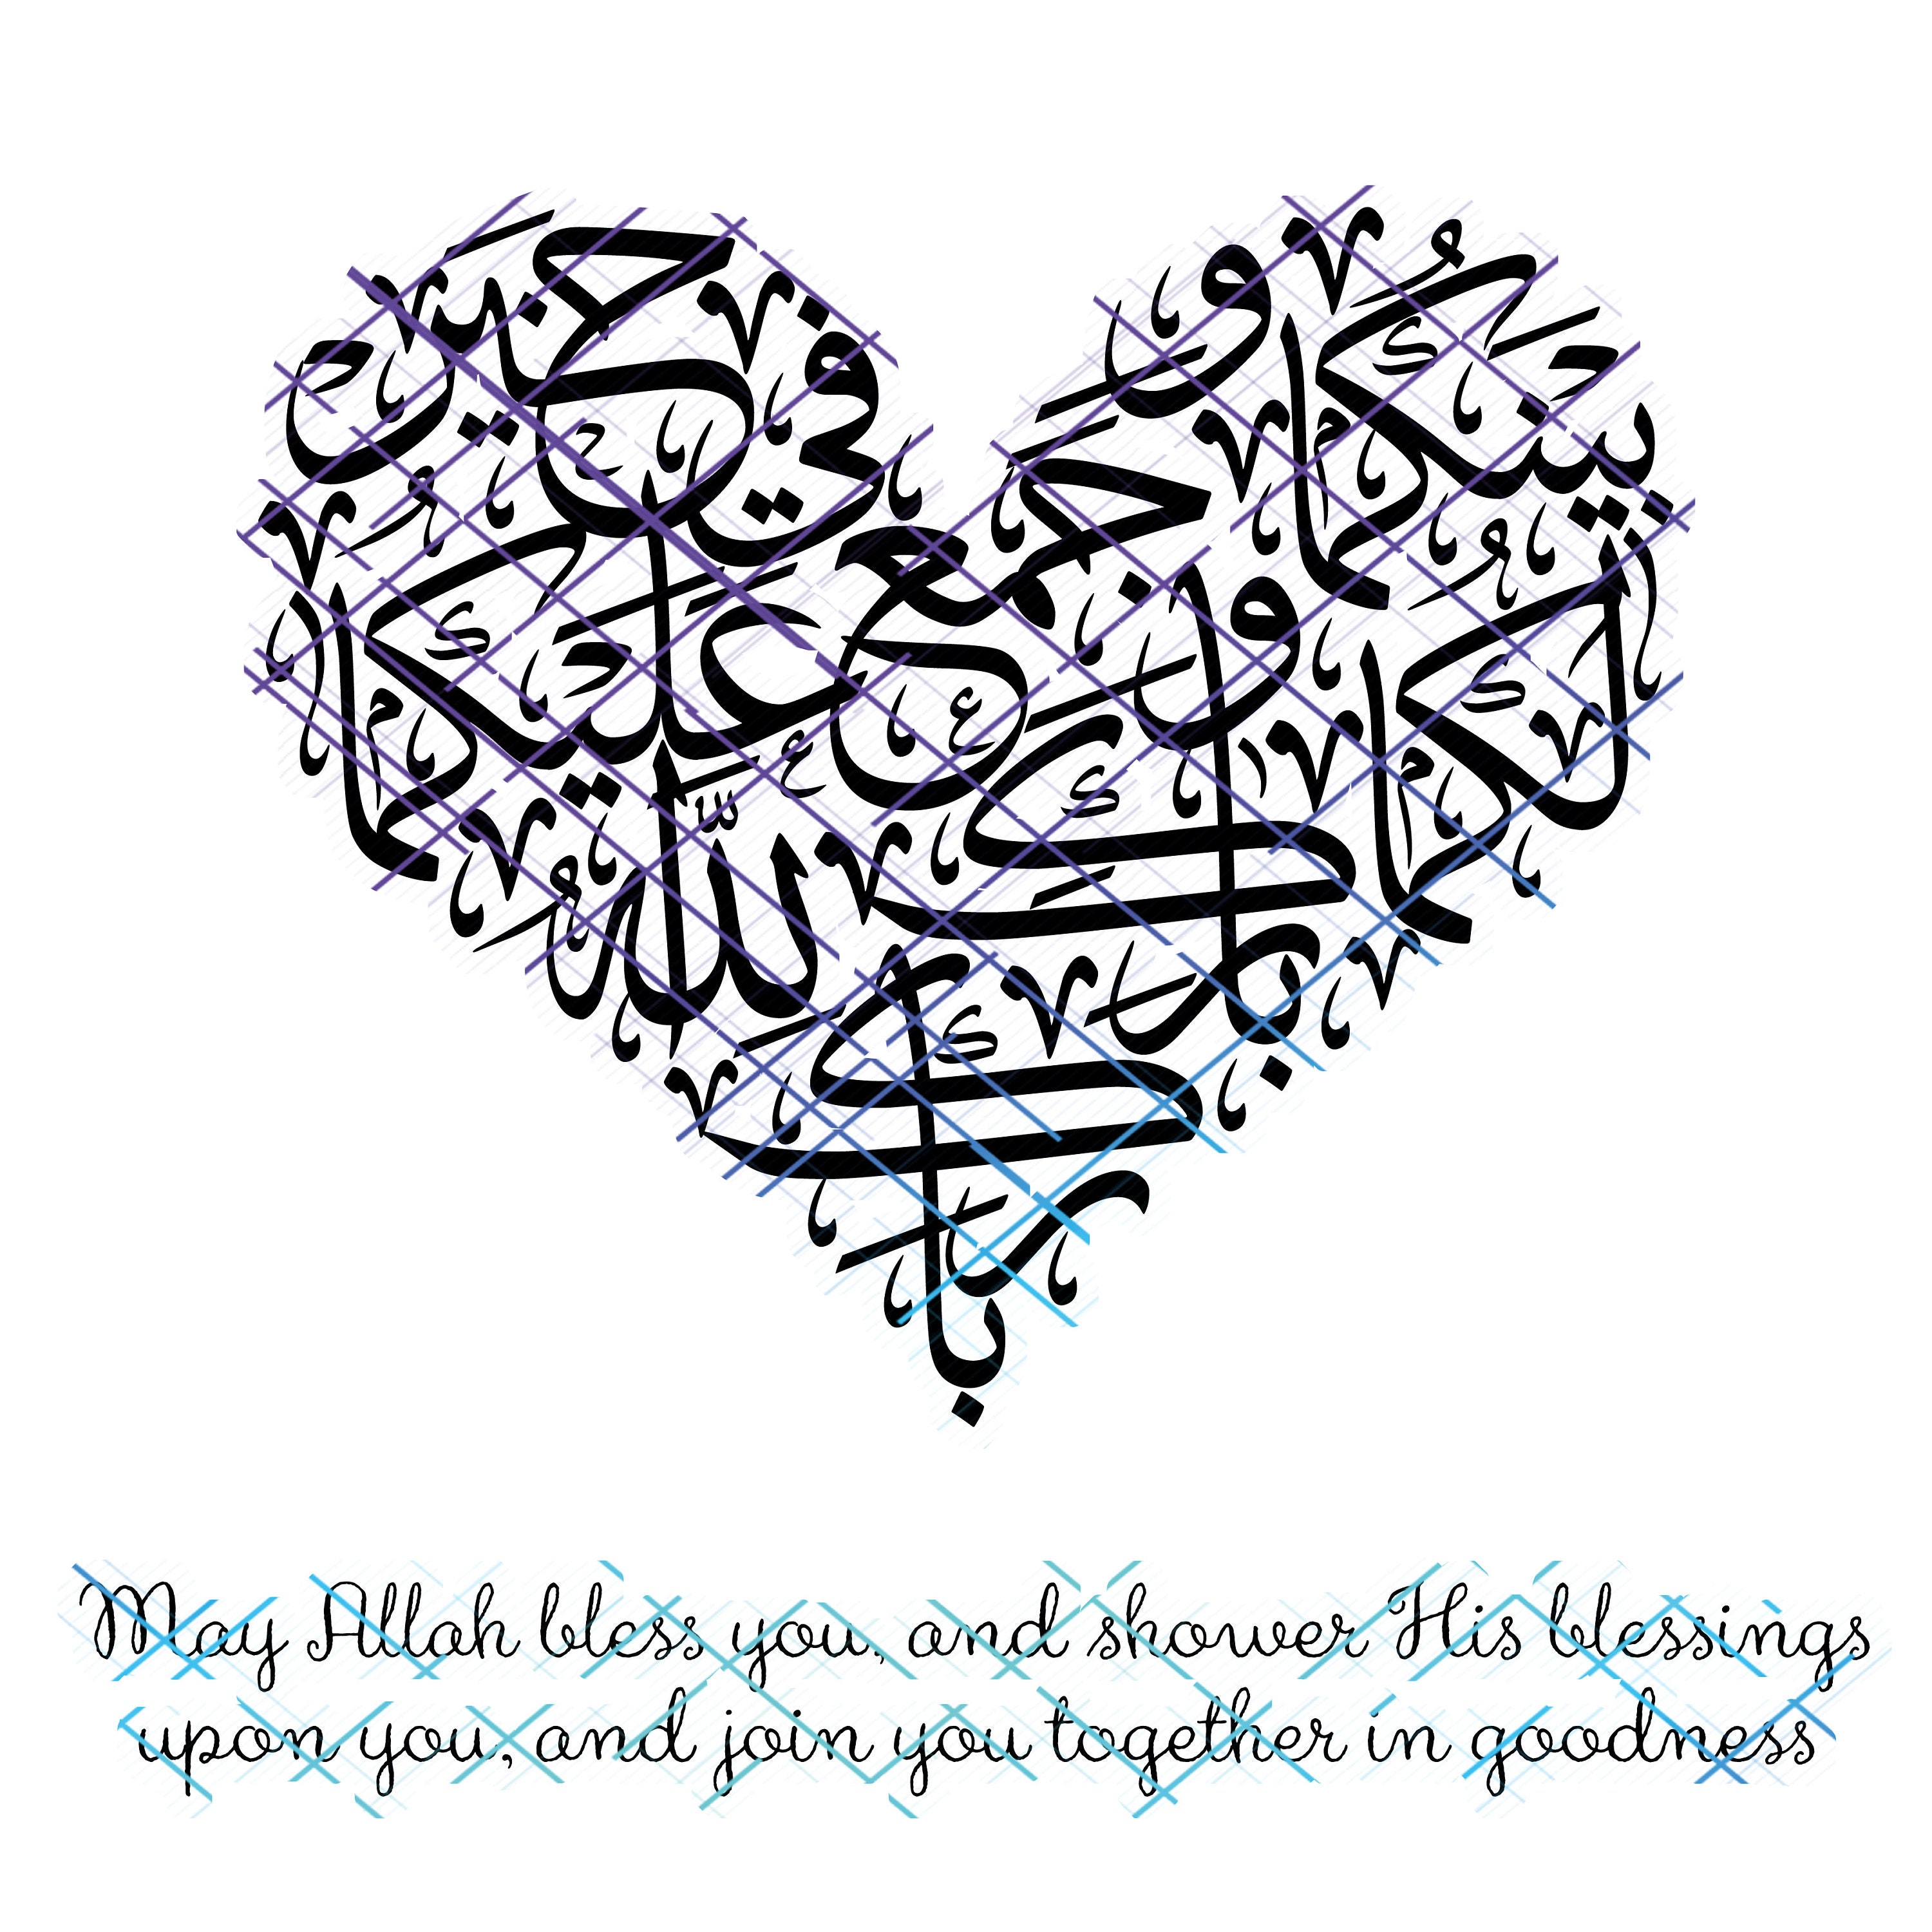 بَارَكَ اللّٰهُ لَكُمَا وَبَارَكَ عَلَيْكُمَا وَجَمَعَ بَيْنَكُمَا فِي خَيْرٍ
May Allah bless you, and shower His blessings
upon you, and join you together in goodness